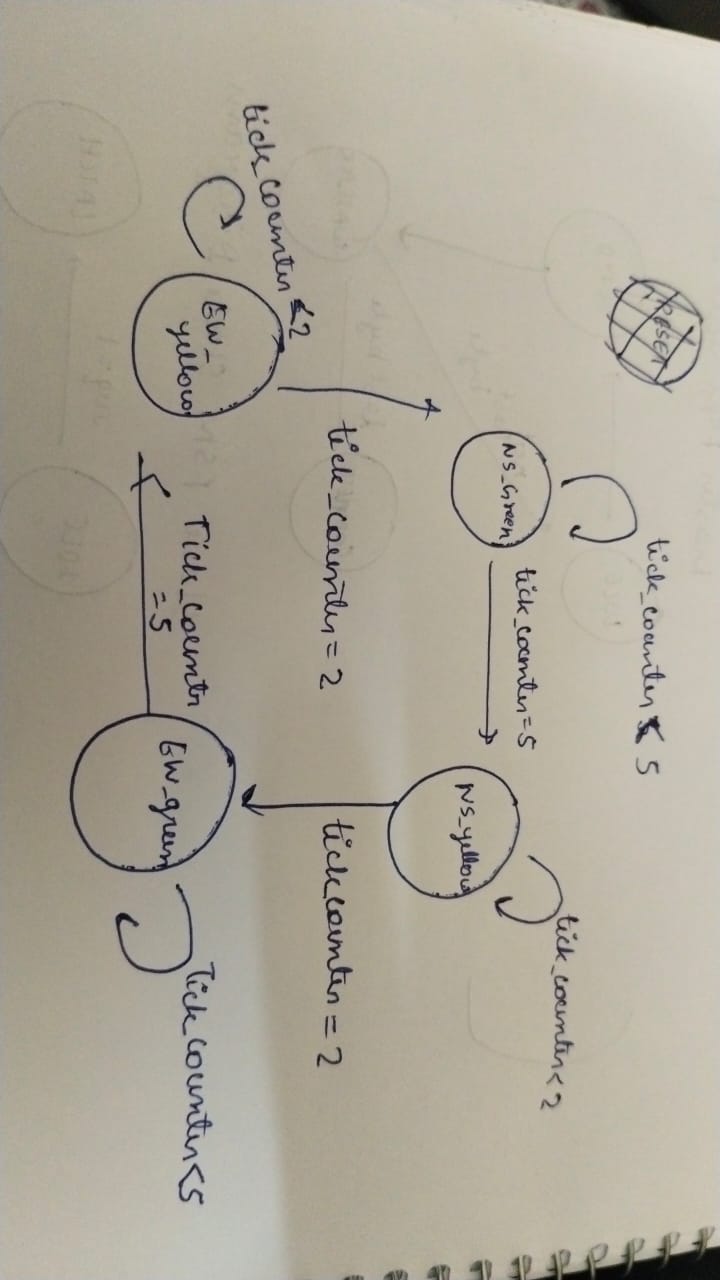 RESET
tick_counter < 5
NS_Green
tick_counter = 5
NS_yellow
tick_counter < 2
tick_counter = 2
tick_counter = 2
tick_counter < 2
EW_
yellow
Tick_counter
= 5
EW_green
Tick_counter < 5